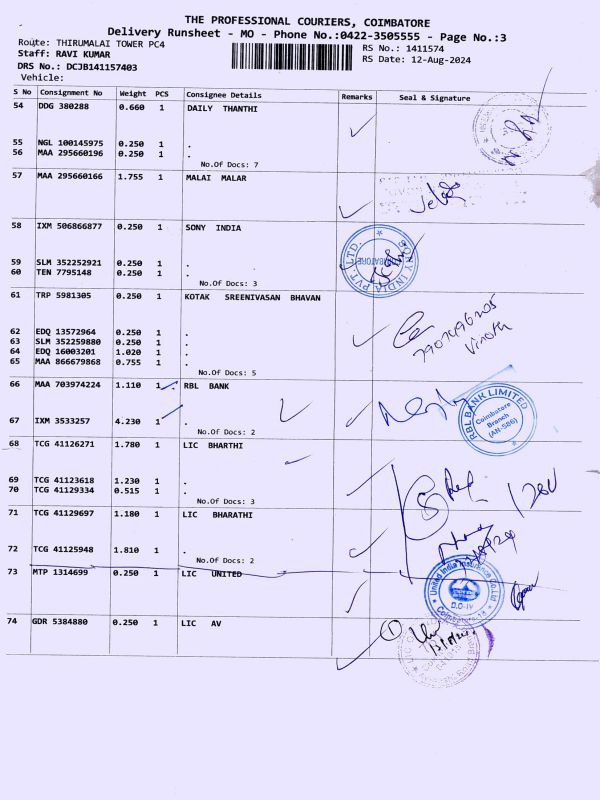 THE PROFESSIONAL COURIERS, COIMBATORE
Delivery Runsheet - MO - Phone No.:0422-3505555 - Page No.:3
Route: THIRUMALAI TOWER PC4
RS No.: 1411574
Staff: RAVI KUMAR
RS Date: 12-Aug-2024
DRS No.: DCJB141157403
Vehicle:
S No Consignment No Weight PCS Consignee Details Remarks Seal & Signature
54 DDG 380288 0.660 1 DAILY THANTHI
55 NGL 100145975 0.250 1 .
56 MAA 295660196 0.250 1 .
No.Of Docs: 7
57 MAA 295660166 1.755 1 MALAI MALAR
58 IXM 506866877 0.250 1 SONY INDIA
SONY INDIA PVT. LTD.
COIMBATORE
59 SLM 352252921 0.250 1 .
60 TEN 7795148 0.250 1 .
No.Of Docs: 3
61 TRP 5981305 0.250 1 KOTAK SREENIVASAN BHAVAN
Vinoth
62 EDQ 13572964 0.250 1 .
63 SLM 352259880 0.250 1 .
64 EDQ 16003201 1.020 1 .
65 MAA 866679868 0.755 1 .
No.Of Docs: 5
66 MAA 703974224 1.110 1 RBL BANK
RBL BANK LIMITED
Coimbatore
Branch
(AN-586)
67 IXM 3533257 4.230 1 .
No.Of Docs: 2
68 TCG 41126271 1.780 1 LIC BHARTHI
69 TCG 41123618 1.230 1 .
70 TCG 41129334 0.515 1 .
No.Of Docs: 3
71 TCG 41129697 1.180 1 LIC BHARATHI
72 TCG 41125948 1.810 1 .
No.Of Docs: 2
73 MTP 1314699 0.250 1 LIC UNITED
United India Insurance Co.Ltd
D.O-IV
Coimbatore-18
74 GDR 5384880 0.250 1 LIC AV
1